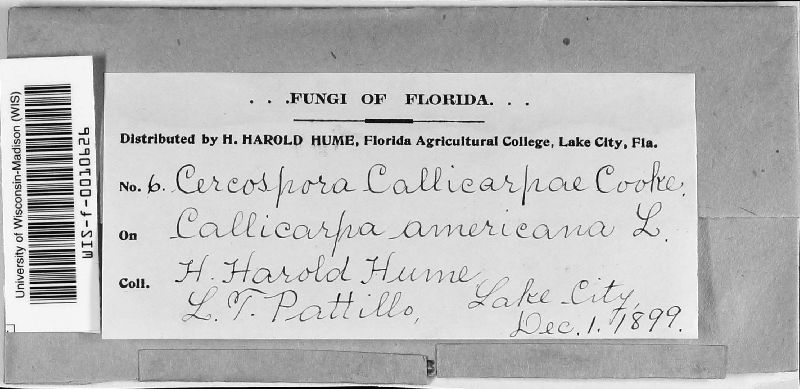 University of Wisconsin-Madison (WIS)
WIS-f-0010626
. . .FUNGI OF FLORIDA. . .
Distributed by H. HAROLD HUME, Florida Agricultural College, Lake City, Fla.
No. 6. Cercospora Callicarpae Cooke.
On Callicarpa americana L.
Coll. H. Harold Hume
L. T. Pattillo, Lake City,
Dec. 1. 1899.